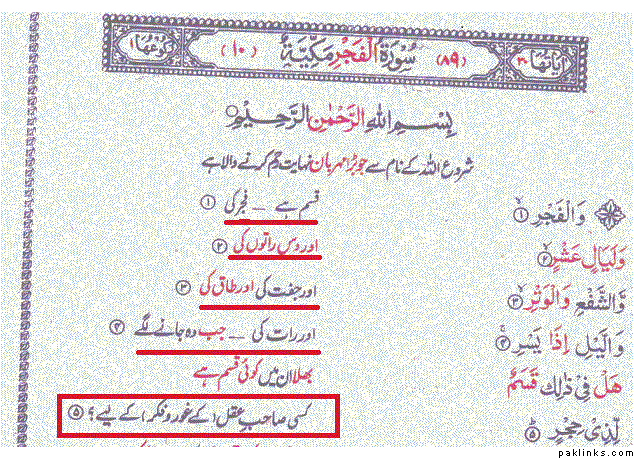 اٰيَاتُهَا ٣٠ (٨٩) سُوْرَةُ الْفَجْرِ مَكِّيَّةٌ (١٠) رُكُوْعُهَا ١
بِسْمِ اللهِ الرَّحْمٰنِ الرَّحِيْمِ
شروع اللہ کے نام سے جو بڑا مہربان نہایت رحم کرنے والا ہے
وَالْفَجْرِ ۙ﴿١﴾ قسم ہے ــ فجر کی ①
وَلَيَالٍ عَشْرٍ ۙ﴿٢﴾ اور دس راتوں کی ②
وَّالشَّفْعِ وَالْوَتْرِ ۙ﴿٣﴾ اور جفت کی اور طاق کی ③
وَالَّيْلِ اِذَا يَسْرِ ۚ﴿٤﴾ اور رات کی ــ جب وہ جانے لگے ④
هَلْ فِيْ ذٰلِكَ قَسَمٌ بھلا ان میں کوئی قسم ہے
لِّذِيْ حِجْرٍ ﴿٥﴾ کسی صاحبِ عقل (کے غور و فکر) کے لیے؟ ⑤
paklinks.com